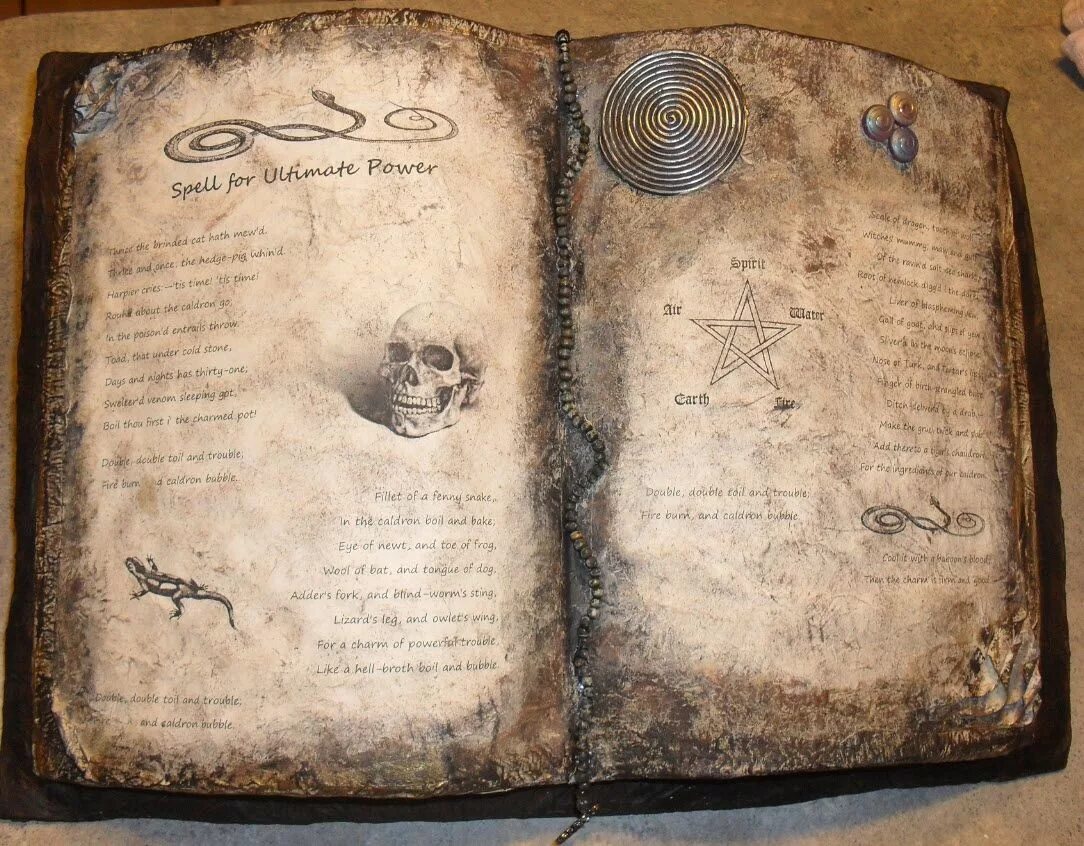 Spell for Ultimate Power
Thrice the brinded cat hath mew'd.
Thrice and once, the hedge-pig whin'd.
Harpier cries:—'tis time! 'tis time!
Round about the caldron go;
In the poison'd entrails throw.
Toad, that under cold stone,
Days and nights has thirty-one;
Swelter'd venom sleeping got,
Boil thou first i' the charmed pot!
Double, double toil and trouble;
Fire burn d caldron bubble.
Fillet of a fenny snake,
In the caldron boil and bake;
Eye of newt, and toe of frog,
Wool of bat, and tongue of dog,
Adder's fork, and blind-worm's sting,
Lizard's leg, and owlet's wing,
For a charm of powerful trouble,
Like a hell-broth boil and bubble.
Double, double toil and trouble;
and caldron bubble.
Spirit
Air
Water
Earth
Fire
Double, double toil and trouble;
Fire burn, and caldron bubble.
Scale of dragon, tooth
Witches' mummy, maw and gulf
Of the ravin'd salt-sea shark,
Root of hemlock digg'd i the dark,
Liver of blaspheming Jew,
Gall of goat, and slips of yew
Silver'd in the moon's eclipse,
Nose of Turk, and Tartar's lips,
Finger of birth-strangled babe
Ditch-deliver'd by a drab,—
Make the gruel thick and slab:
Add thereto a tiger's chaudron,
For the ingredients of our caldron.
Cool it with a baboon's blood,
Then the charm is firm and good.